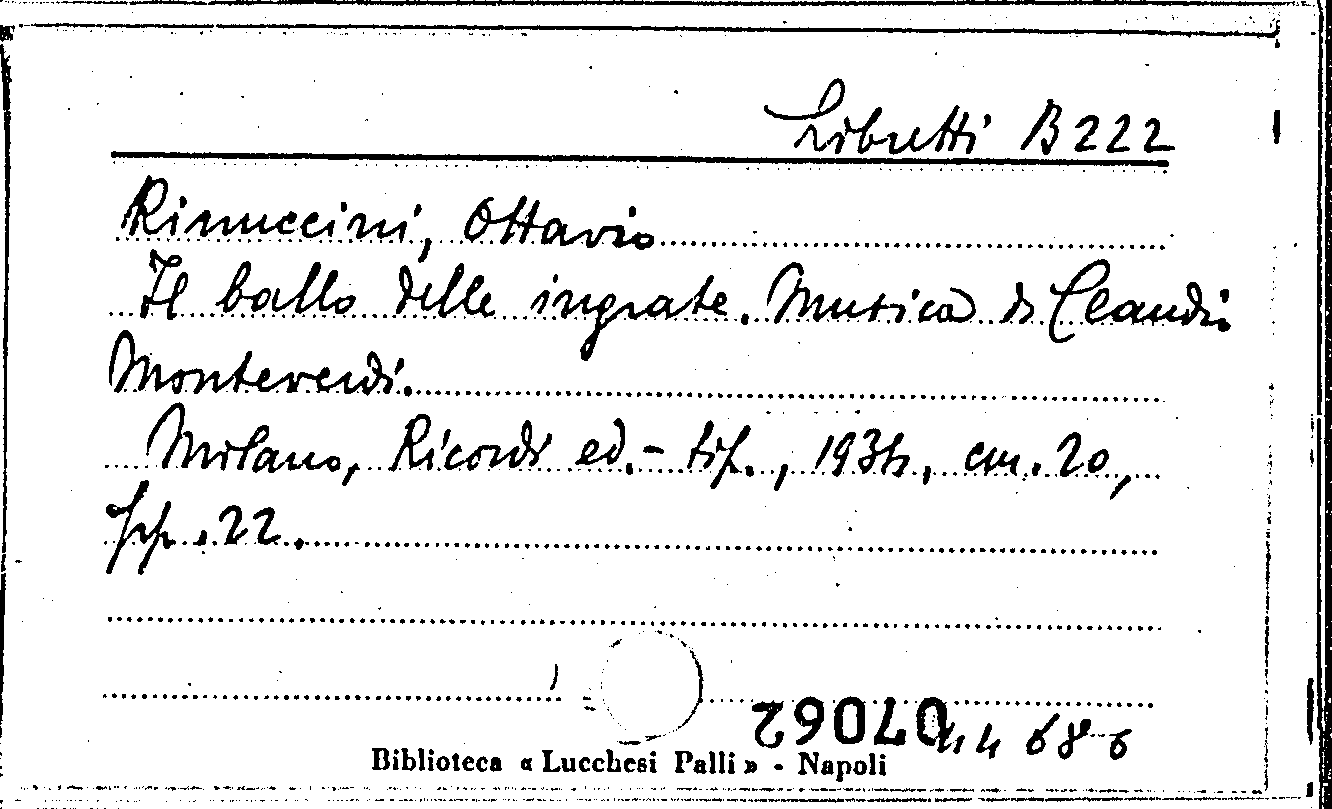 Libretti B 222
Rinuccini, Ottavio
Il ballo delle ingrate. Musica di Claudio
Monteverdi.
Milano, Ricordi ed.-tip., 1934, cm. 20,
pp. 22.
07062
Biblioteca « Lucchesi Palli » - Napoli